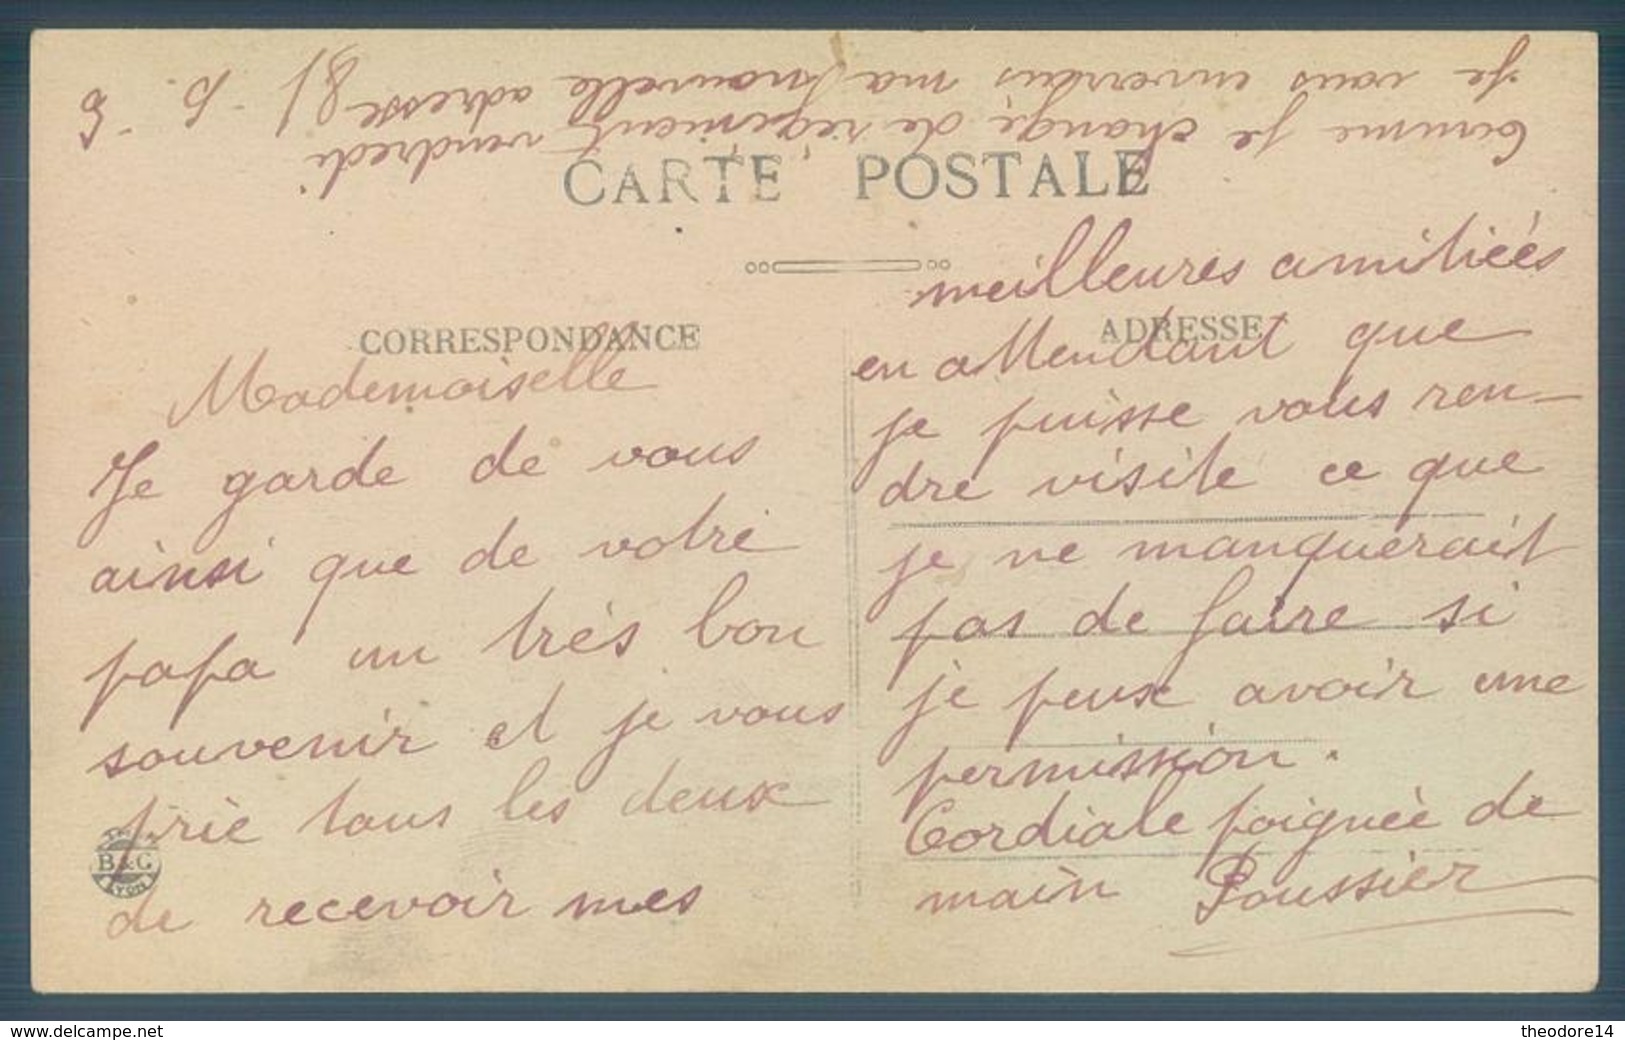 Comme je change de régiment vendredi
je vous enverrais ma nouvelle adresse
CARTE POSTALE
CORRESPONDANCE
Mademoiselle
Je garde de vous
ainsi que de votre
papa un très bon
souvenir et je vous
prie tous les deux
de recevoir mes
B&G
Lyon
meilleures amitiées
ADRESSE
en attendant que
je puisse vous ren-
dre visite ce que
je ne manquerait
pas de faire si
je peux avoir une
permission.
Cordiale poignée de
main Poussier
www.delcampe.net
theodore14